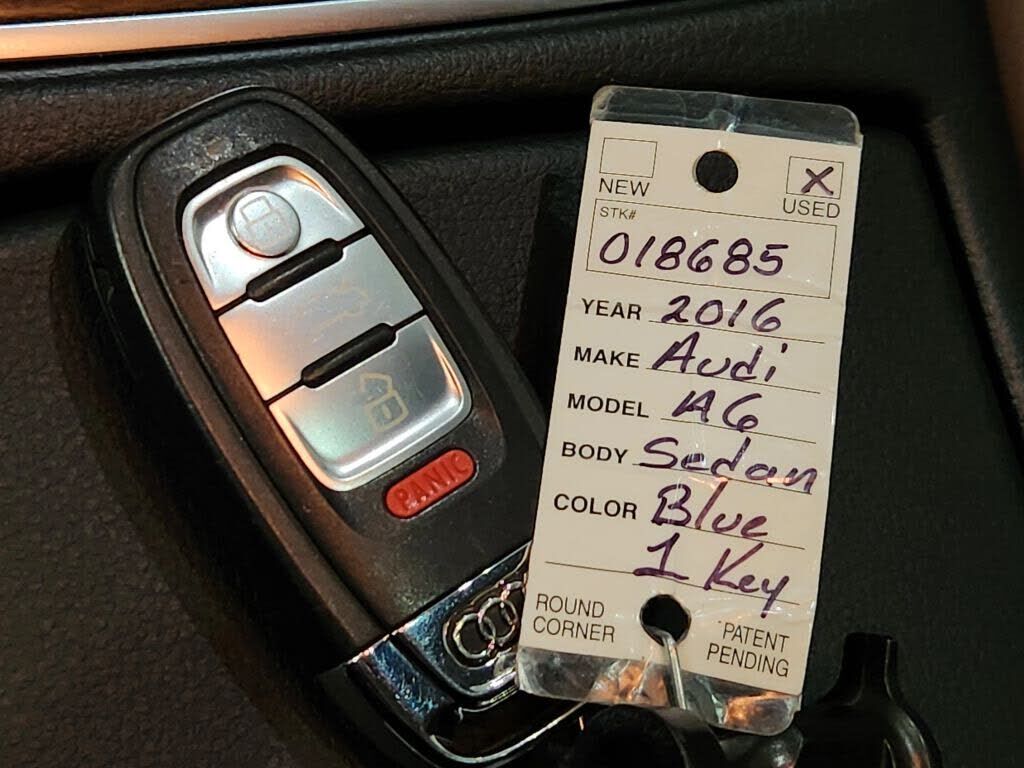 NEW
X
USED
STK#
018685
YEAR 2016
MAKE Audi
MODEL A6
BODY Sedan
COLOR Blue
1 Key
ROUND
CORNER
PATENT
PENDING
PANIC